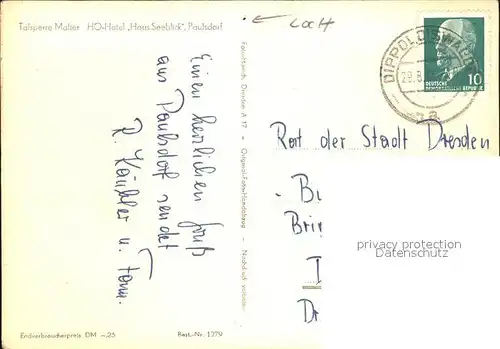 Talsperre Malter HO-Hotel „Haus Seeblick“, Paulsdorf
LOCH
DIPPOLDISWALDE
29.8.
10
DEUTSCHE
DEMOKRATISCHE REPUBLIK
Einen herzlichen Gruß
aus Paulsdorf sendet
R. u. Fam.
Fotochemie Dresden A 17 - Original-Foto-Handabzug - Nachdruck verboten
Rat der Stadt Dresden
- B
Bri
I
Dr
privacy protection
Datenschutz
Endverbraucherpreis DM –,25 Best.-Nr. 1279